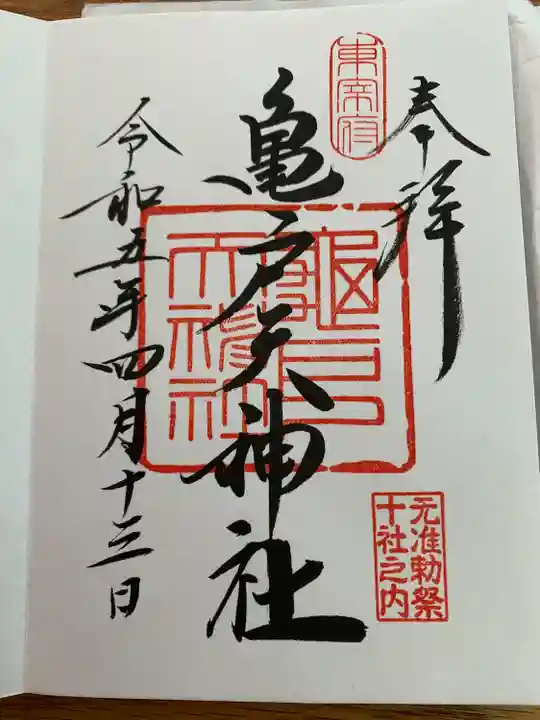 奉拝
東宰府
亀戸天神社
亀戸天神社
元准勅祭
十社之内
令和五年四月十三日